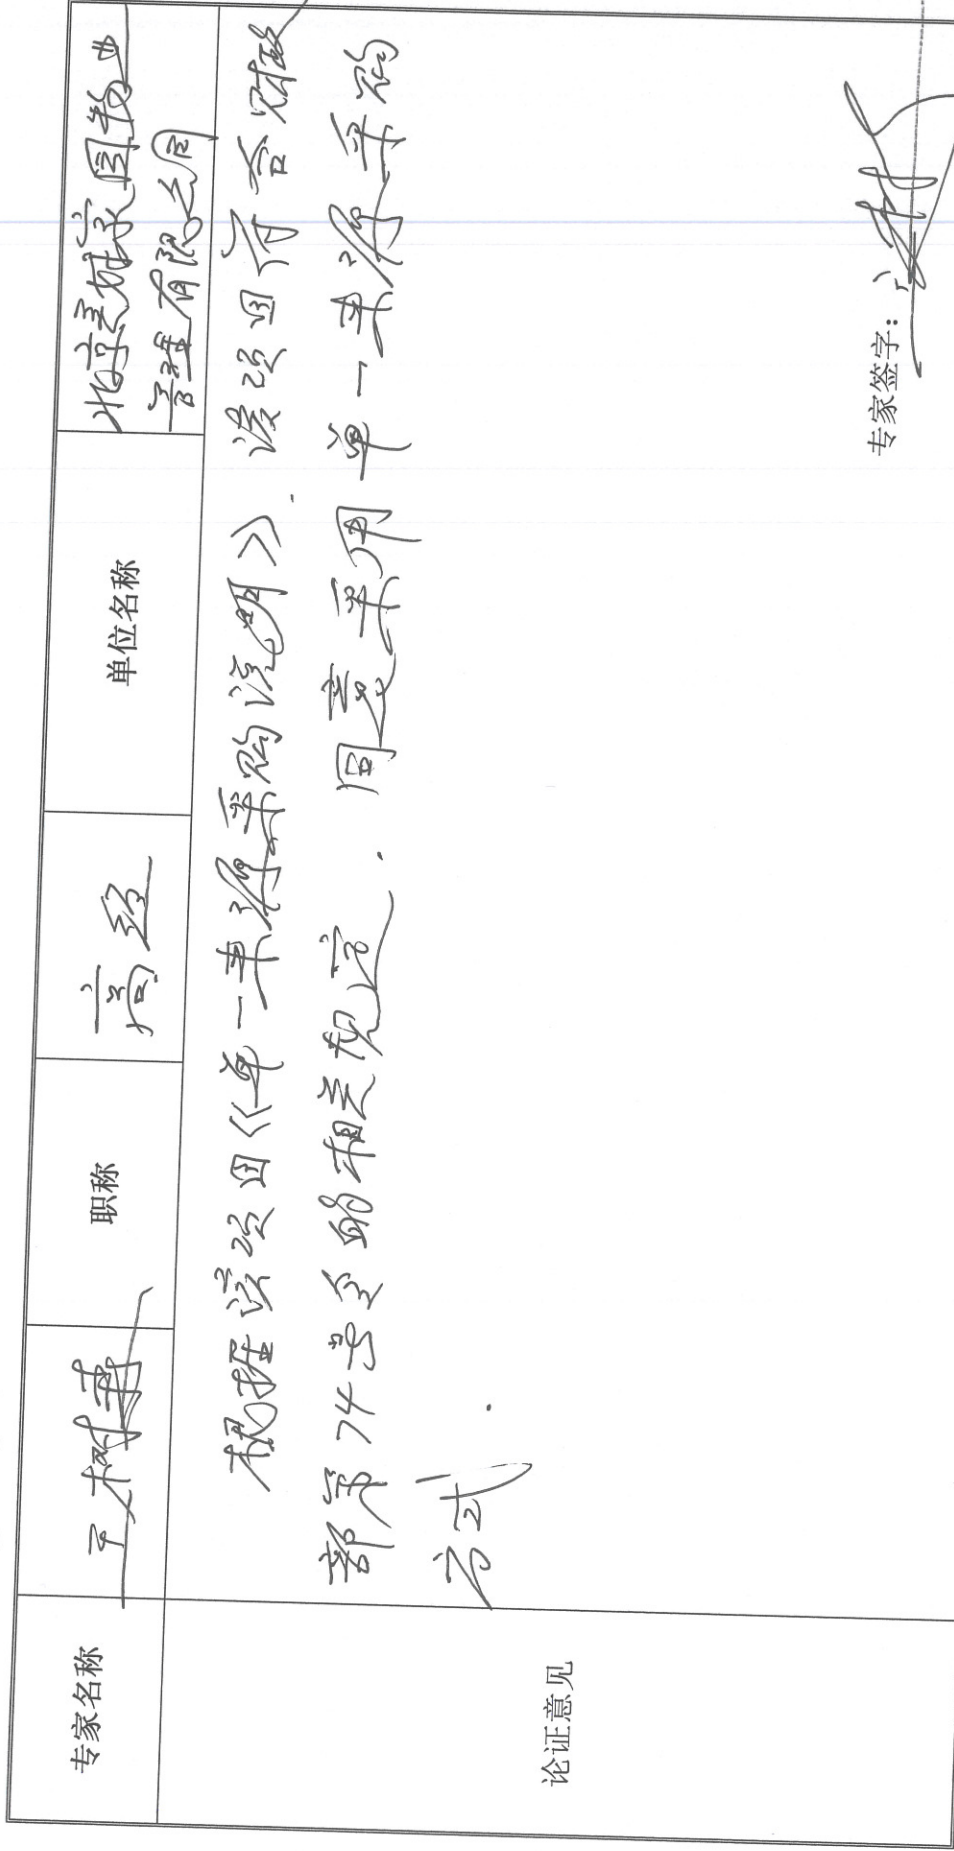 专家名称 王树春 职称 高经 单位名称 北京美城家园物业
管理有限公司
论证意见
根据该项目《单一来源采购说明》. 该项目符合财政
部第74号令的相关规定. 同意采用单一来源采购
方式.
专家签字: